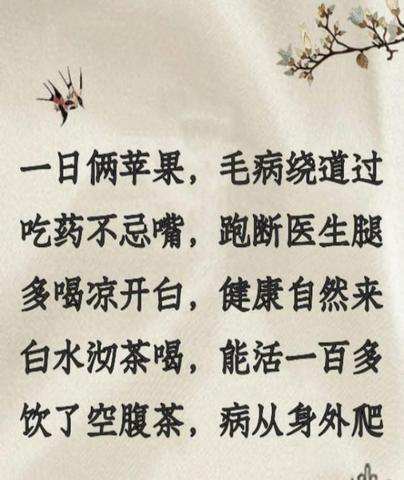 一日俩苹果，毛病绕道过
吃药不忌嘴，跑断医生腿
多喝凉开白，健康自然来
白水沏茶喝，能活一百多
饮了空腹茶，病从身外爬